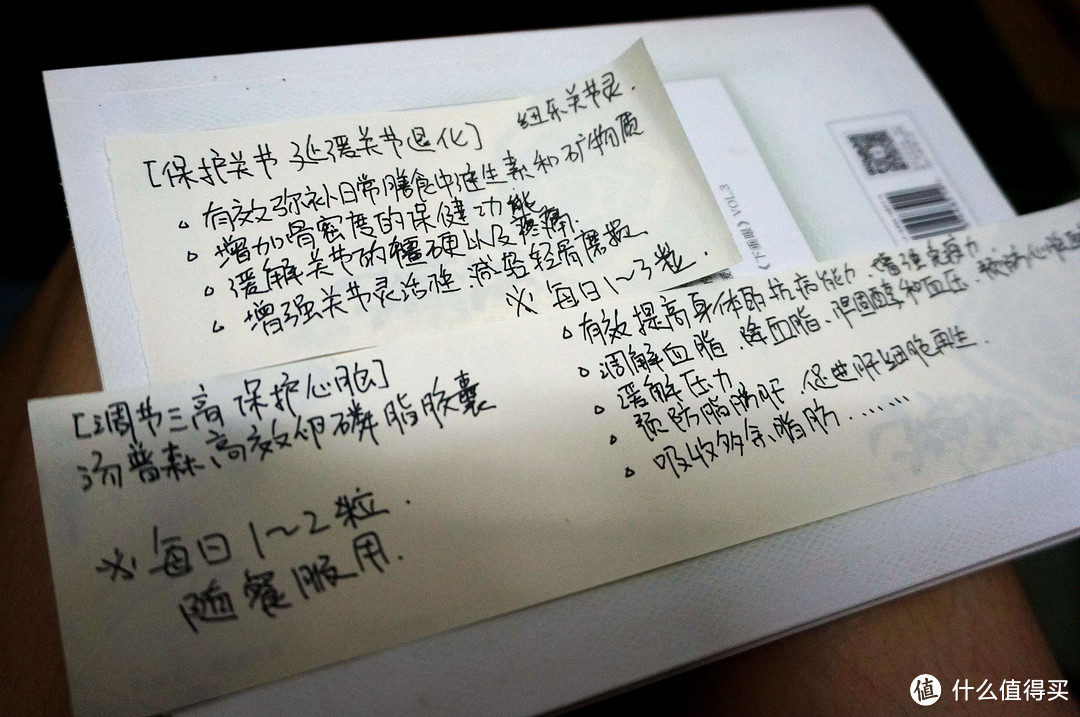 [保护关节 延缓关节退化] 纽乐关节灵.
有效弥补日常膳食中维生素和矿物质
增加骨密度的保健功能
缓解关节的僵硬以及疼痛.
增强关节灵活性.减轻轻骨磨损
※ 每日1~3粒.
[调节三高 保护心脑]
汤普森、高效卵磷脂胶囊
※ 每日1~2粒.
随餐服用.
有效提高身体的抗病能力.增强免疫力
调解血脂.降血脂、胆固醇和血压.预防心
缓解压力
预防脂肪肝.促进肝细胞再生.
吸收多余脂肪……
《下垂眼》VOL.3
值 什么值得买